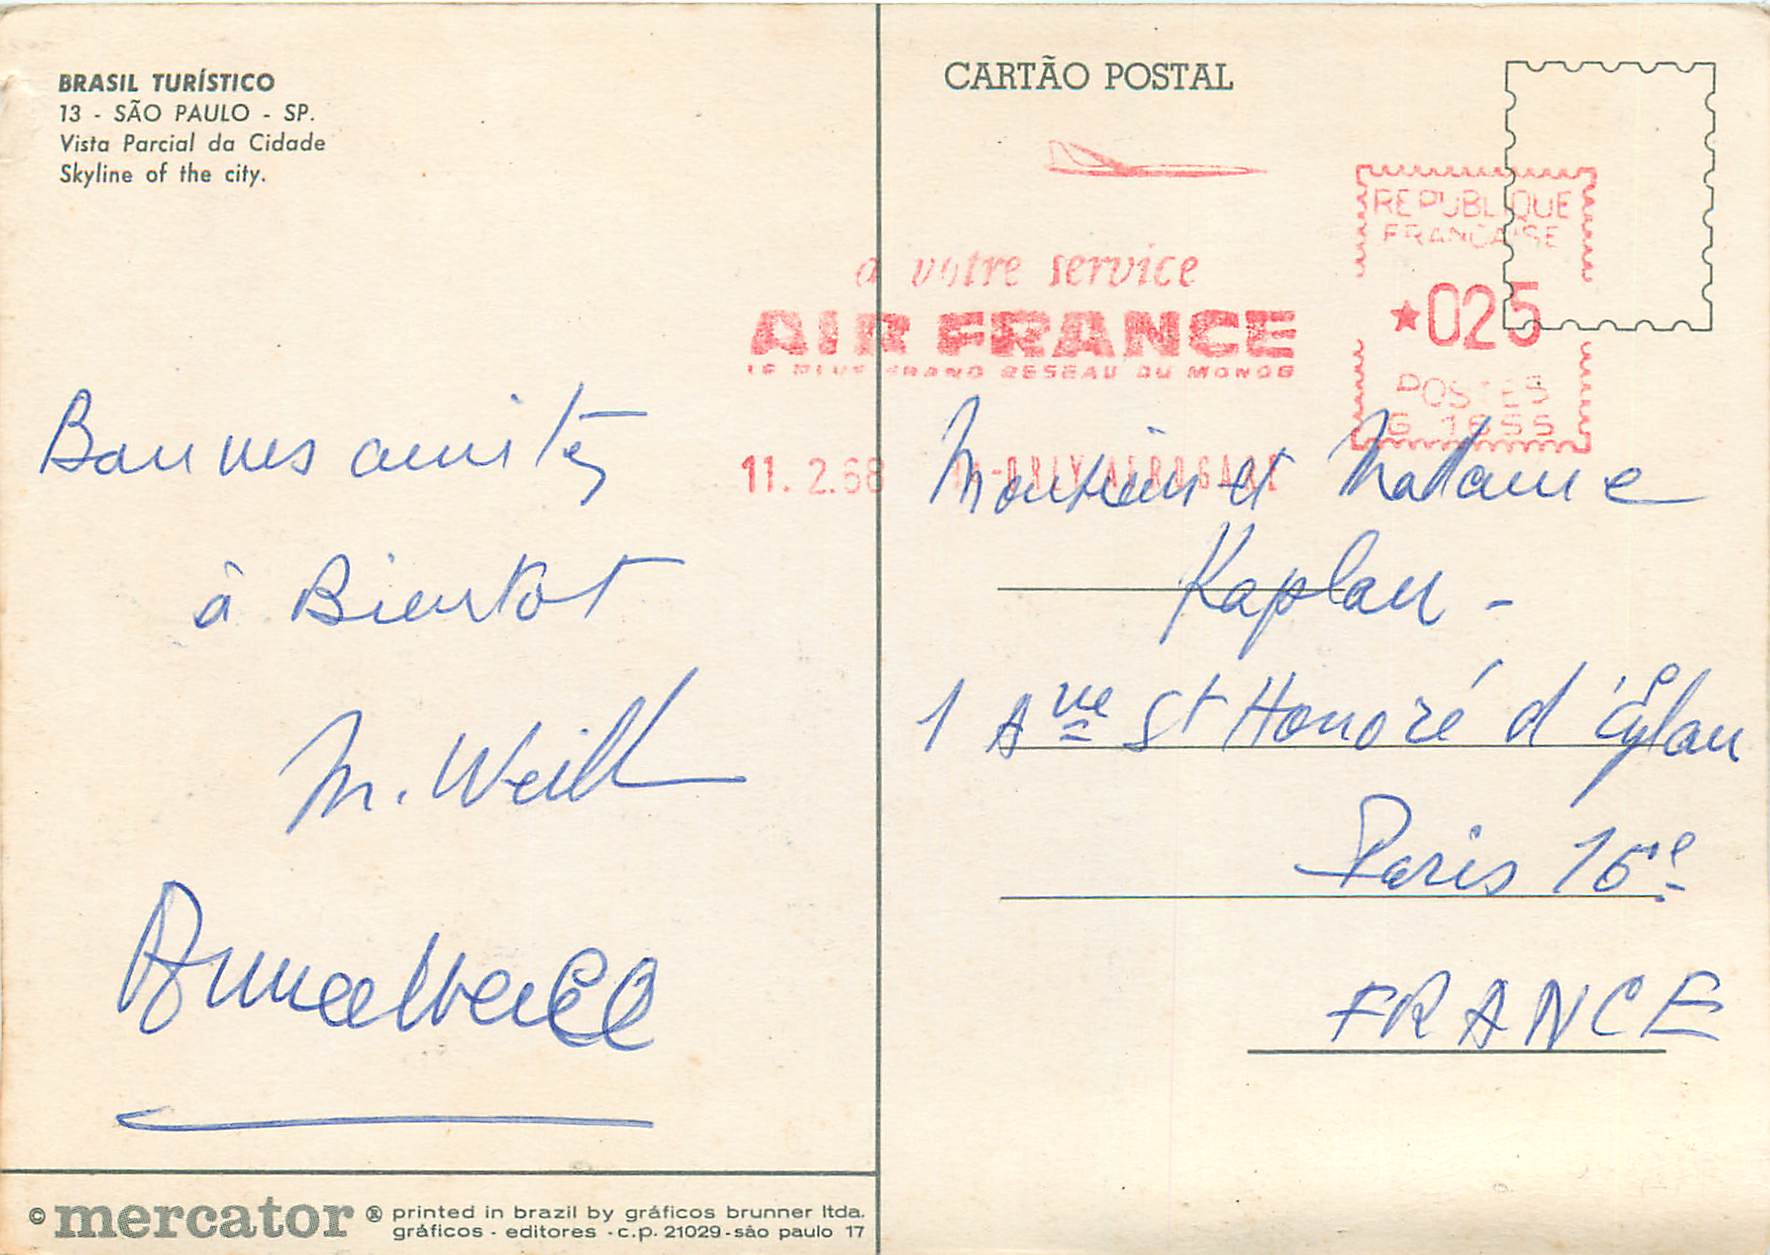 BRASIL TURÍSTICO
13 - SÃO PAULO - SP.
Vista Parcial da Cidade
Skyline of the city.
Bonnes amitiés
à Bientot
M. Weill
© mercator ® printed in brazil by gráficos brunner ltda.
gráficos - editores - c.p. 21029 - são paulo 17
CARTÃO POSTAL
à votre service
AIR FRANCE
LE PLUS GRAND RESEAU DU MONDE
11. 2.68 ORLY AEROGARE
REPUBLIQUE
FRANCAISE
★025
POSTES
G 1655
Monsieur et Madame
Kaplan -
1 Ave St Honoré d'Eylau
Paris 16e
FRANCE